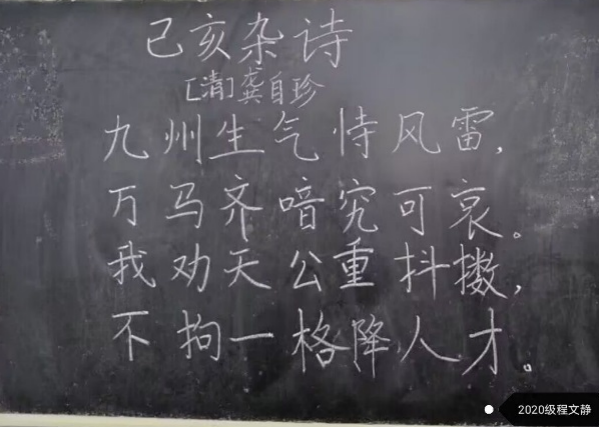 己亥杂诗
[清]龚自珍
九州生气恃风雷,
万马齐喑究可哀。
我劝天公重抖擞,
不拘一格降人才。
2020级程文静